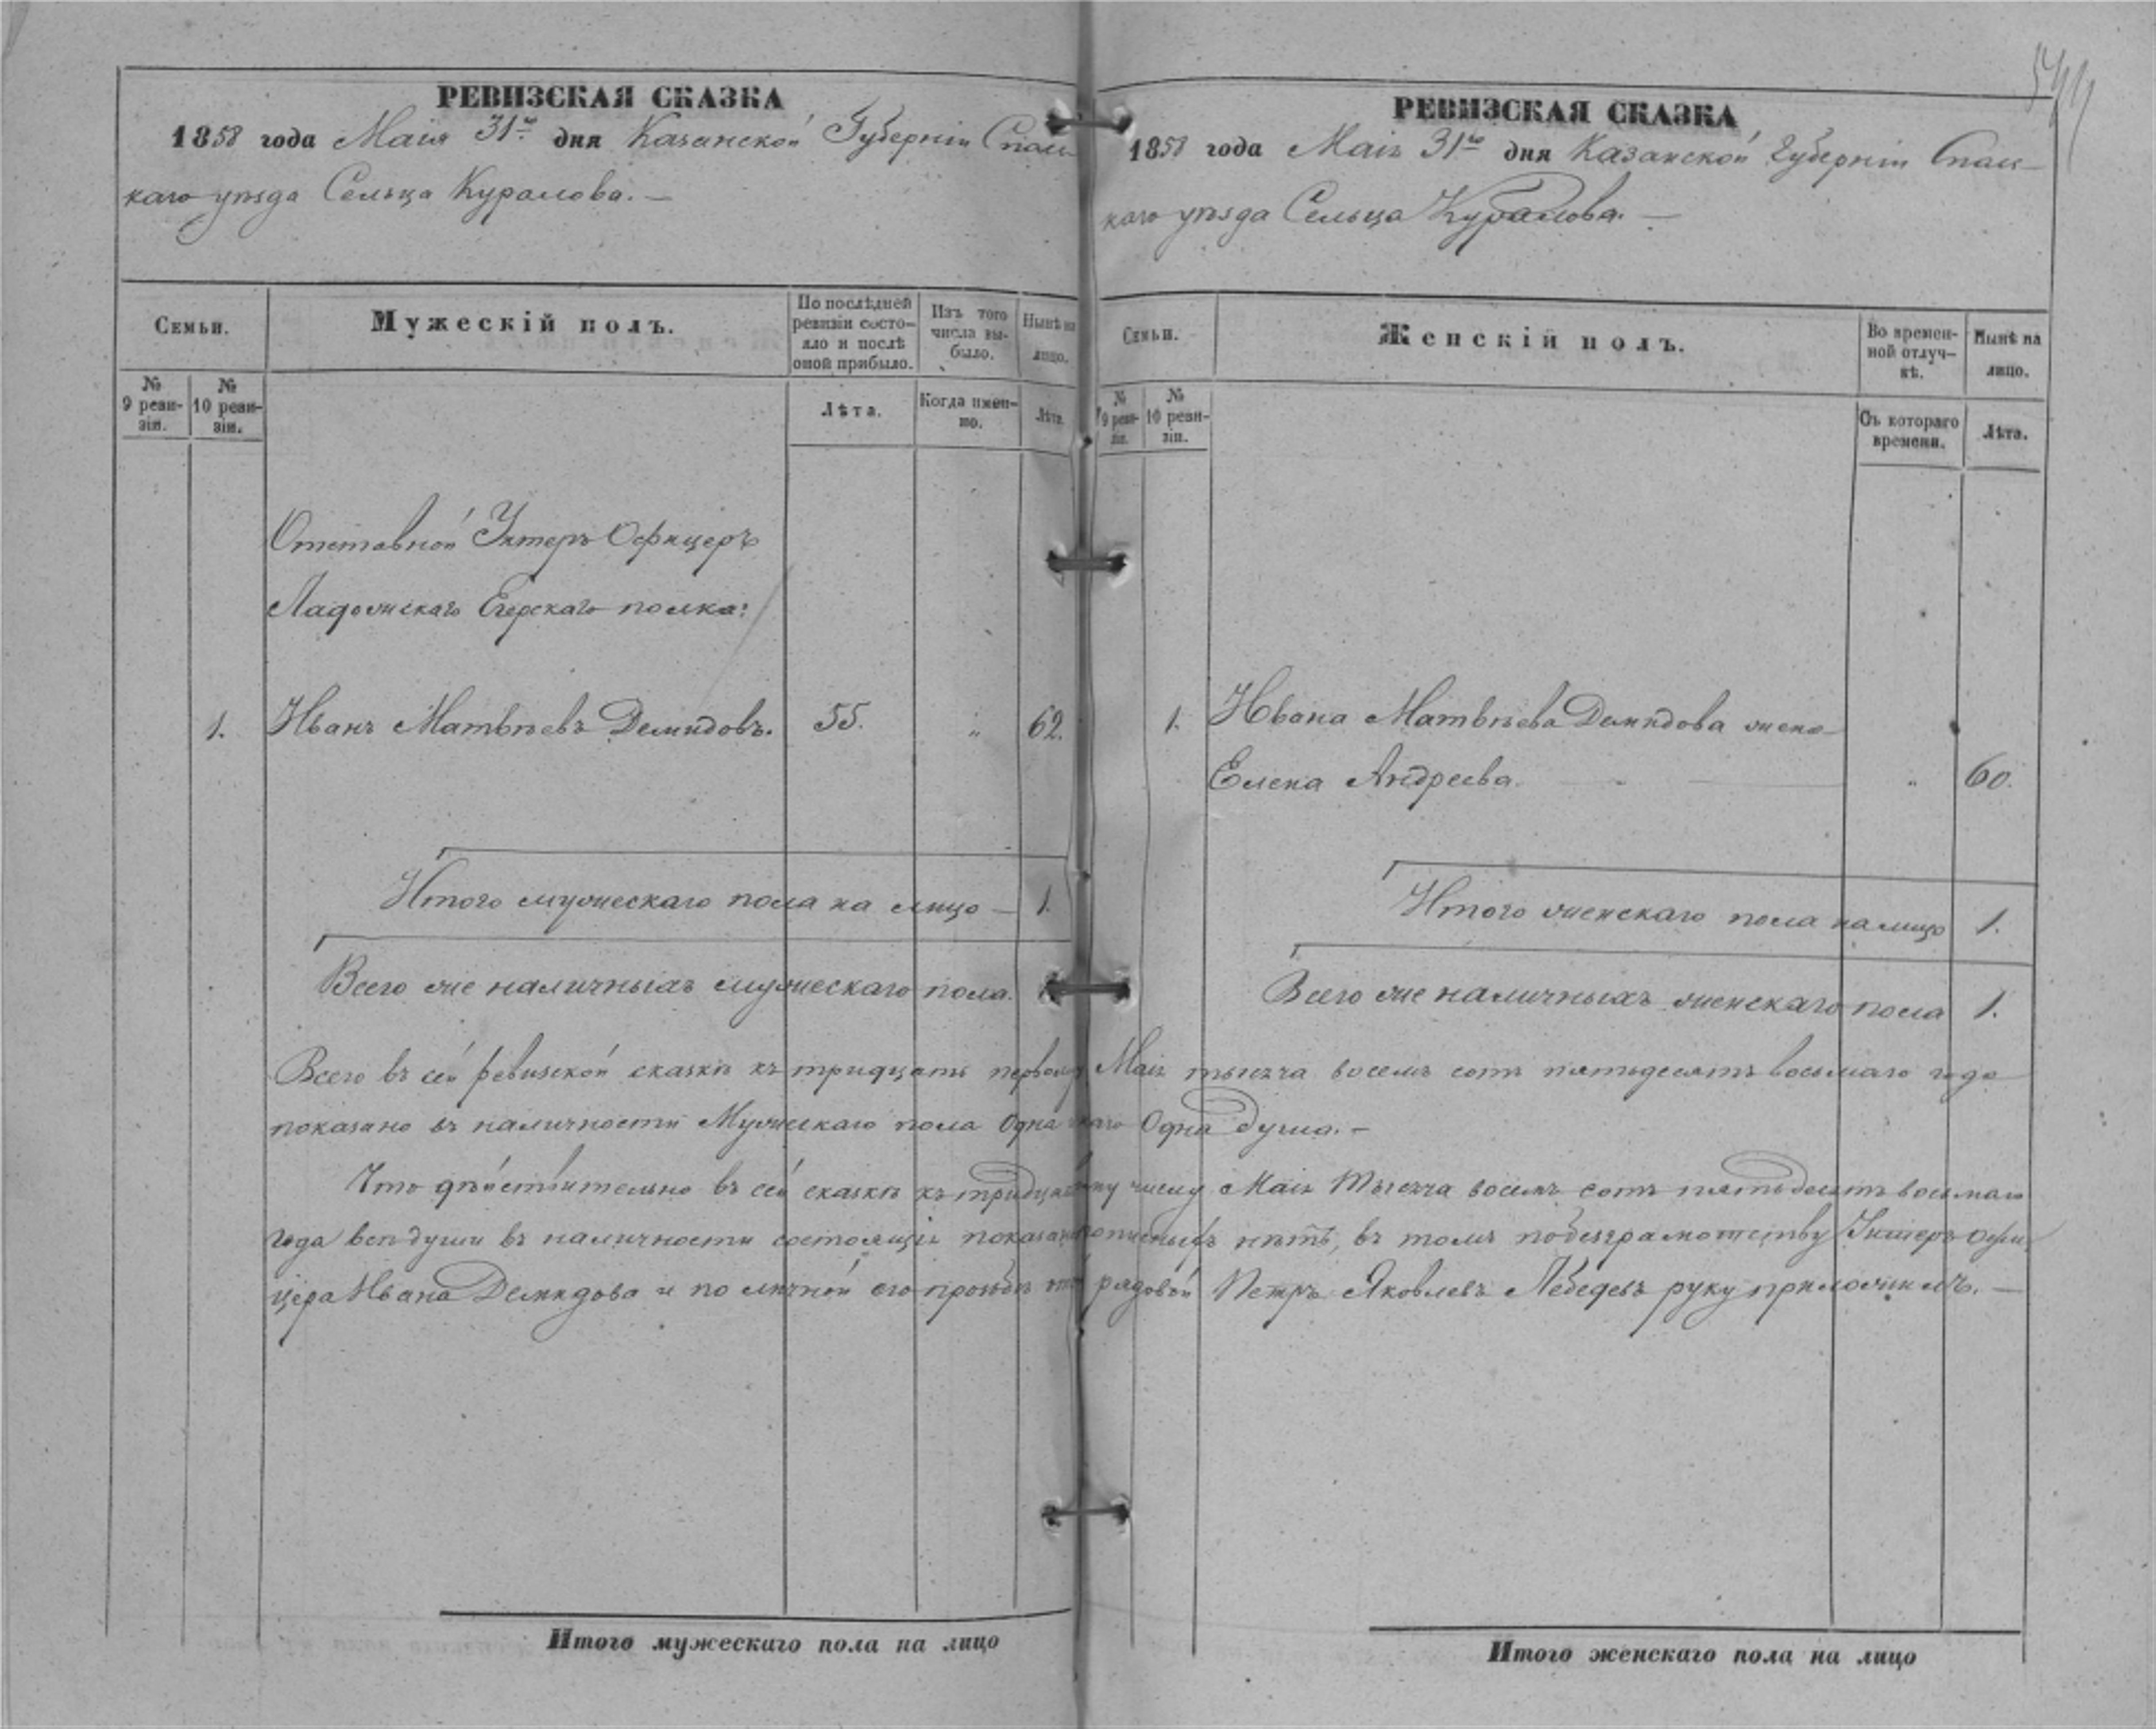 РЕВИЗСКАЯ СКАЗКА
1858 года Маія 31го дня Казанской Губерніи Спас-
каго уѣзда Сельца Куралова. —
Семьи.
№ 9 реви-зіи.
№ 10 реви-зіи.
Мужескій полъ.
По послѣдней ревизіи состо-яло и послѣ оной прибыло.
Лѣта.
Изъ того числа вы-было.
Когда имен-но.
Нынѣ на лицо.
Лѣта.
Отставной Унтеръ Офицеръ
Ладожскаго Егерскаго полка:
1. Иванъ Матвѣевъ Демидовъ. 55. " 62.
Итого мужескаго пола на лицо — 1.
Всего же наличныхъ мужескаго пола.
РЕВИЗСКАЯ СКАЗКА
1858 года Маія 31го дня Казанской Губерніи Спас-
каго уѣзда Сельца Куралова. —
Семьи.
№ 9 реви-зіи.
№ 10 реви-зіи.
Женскій полъ.
Во времен-ной отлуч-кѣ.
Съ котораго времени.
Нынѣ на лицо.
Лѣта.
1. Ивана Матвѣева Демидова жена
Елена Андреева. " 60.
Итого женскаго пола на лицо 1.
Всего же наличныхъ женскаго пола 1.
Всего въ сей ревизской сказкѣ къ тридцать первому Маія тысяча восемь сотъ пятьдесятъ восьмаго года
показано въ наличности Мужескаго пола одна одна душа. —
Что дѣйствительно въ сей сказкѣ къ числу Маія тысяча восемь сотъ пятьдесятъ восьмаго
года всѣ души въ наличности состоящія нѣтъ, въ томъ по безграмотству Унтеръ офи-
цера Ивана Демидова и по личной его прозьбѣ рядовой Петръ Яковлевъ Лебедевъ руку приложилъ. —
Итого мужескаго пола на лицо
Итого женскаго пола на лицо